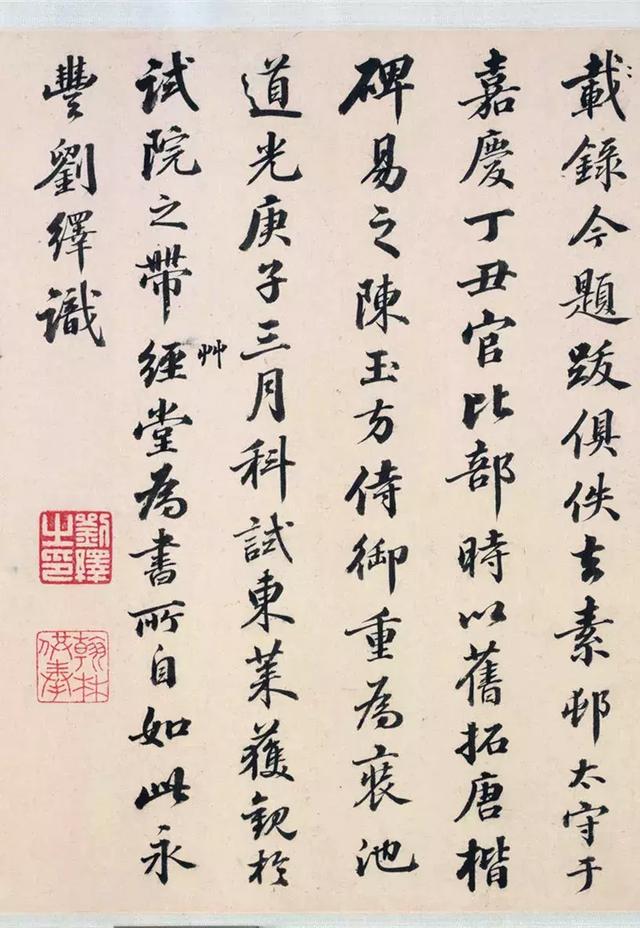 載錄今題跋俱佚去素邨太守于
嘉慶丁丑官比部時以舊拓唐楷
碑易之陳玉方侍御重為裝池
道光庚子三月科試東萊獲觀於
試院之帶經艸堂為書所自如此永
豐劉繹識
劉繹之印
翰林供奉